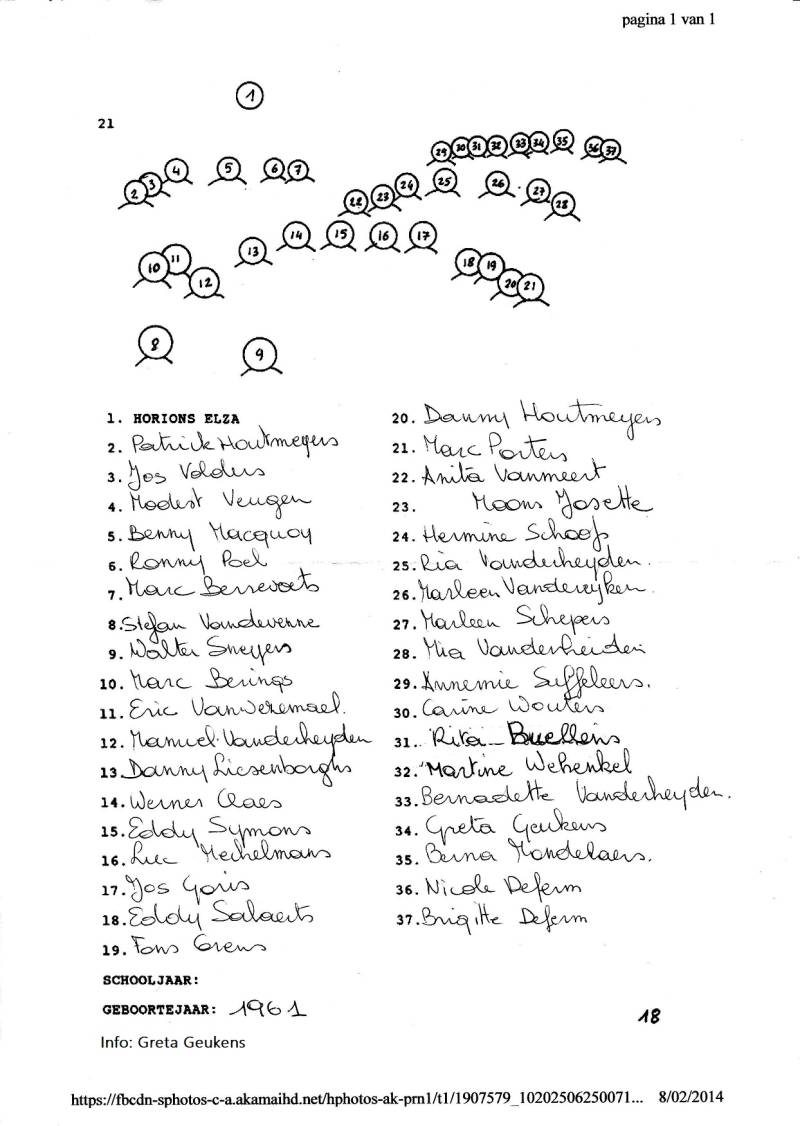 pagina 1 van 1
1
21
29 30 31 32 33 34 35 36 37
2 3 4 5 6 7 22 23 24 25 26 27 28
10 11 12 13 14 15 16 17 18 19 20 21
8 9
1. HORIONS ELZA
2. Patrick Houtmeyers
3. Jos Volders
4. Modest Veugen
5. Benny Macquoy
6. Ronny Poel
7. Marc Bervoets
8. Stefan Vandevenne
9. Walter Sneyers
10. Marc Berings
11. Eric Vanweremael.
12. Manuel Vanderheyden
13. Danny Liesenborghs
14. Werner Claes
15. Eddy Symons
16. Luc Mechelmans
17. Jos Goris
18. Eddy Salaerts
19. Fons Grens
20. Danny Houtmeyers
21. Marc Porters
22. Anita Vanmeert
23. Moons Josette
24. Hermine Schoofs
25. Ria Vanderheyden.
26. Marleen Vandereyken
27. Marleen Schepers
28. Mia Vanderheiden
29. Annemie Suffeleers.
30. Carine Wouters
31. Rita Buellens
32. Martine Wehenkel
33. Bernadette Vanderheyden.
34. Greta Geukens
35. Berna Mondelaers.
36. Nicole Deferm
37. Brigitte Deferm
SCHOOLJAAR:
GEBOORTEJAAR: 1961
18
Info: Greta Geukens
https://fbcdn-sphotos-c-a.akamaihd.net/hphotos-ak-prn1/t1/1907579_10202506250071... 8/02/2014